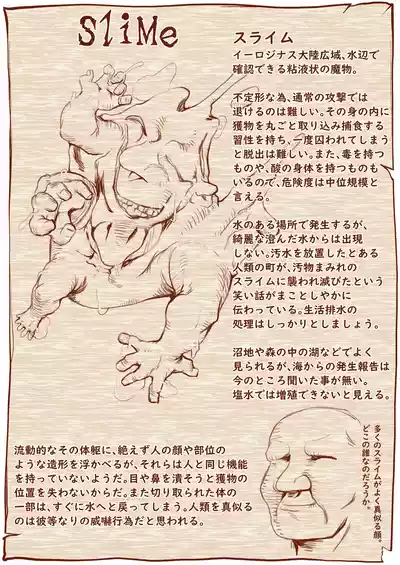 SliMe
スライム
イーロジナス大陸広域、水辺で
確認できる粘液状の魔物。
不定形な為、通常の攻撃では
退けるのは難しい。その身の内に
獲物を丸ごと取り込み捕食する
習性を持ち、一度囚われてしまう
と脱出は難しい。また、毒を持つ
ものや、酸の身体を持つものも
いるので、危険度は中位規模と
言える。
水のある場所で発生するが、
綺麗な澄んだ水からは出現
しない。汚水を放置したとある
人類の町が、汚物まみれの
スライムに襲われ滅びたという
笑い話がまことしやかに
伝わっている。生活排水の
処理はしっかりとしましょう。
沼地や森の中の湖などでよく
見られるが、海からの発生報告は
今のところ聞いた事が無い。
塩水では増殖できないと見える。
流動的なその体躯に、絶えず人の顔や部位の
ような造形を浮かべるが、それらは人と同じ機能
を持っていないようだ。目や鼻を潰そうと獲物の
位置を失わないからだ。また切り取られた体の
一部は、すぐに水へと戻ってしまう。人類を真似る
のは彼等なりの威嚇行為だと思われる。
多くのスライムがよく真似る顔。
どこの誰なのだろうか。